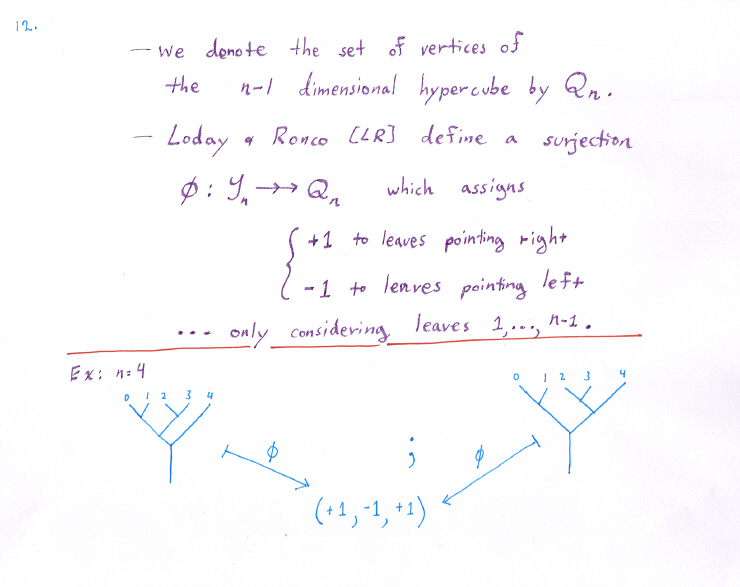 12.
— we denote the set of vertices of
the n-1 dimensional hypercube by Qn.
— Loday & Ronco [LR] define a surjection
φ: Yn ↠ Qn which assigns
{ +1 to leaves pointing right
-1 to leaves pointing left
... only considering leaves 1,..., n-1.
Ex: n=4
0 1 2 3 4
0 1 2 3 4
φ ; φ
(+1, -1, +1)